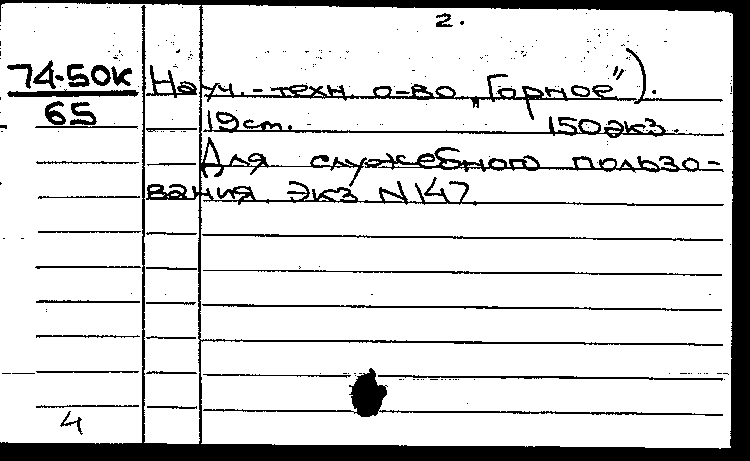 2.
74-50к
65
Науч.-техн. о-во „Горное").
19 ст. 150 экз.
Для служебного пользо-
вания. Экз. N 147.
4